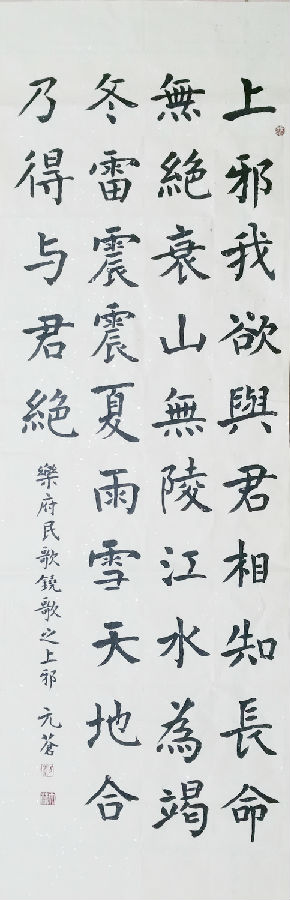 上邪我欲與君相知長命
無絶衰山無陵江水為竭
冬雷震震夏雨雪天地合
乃得与君絶
樂府民歌鐃歌之上邪 元蒼